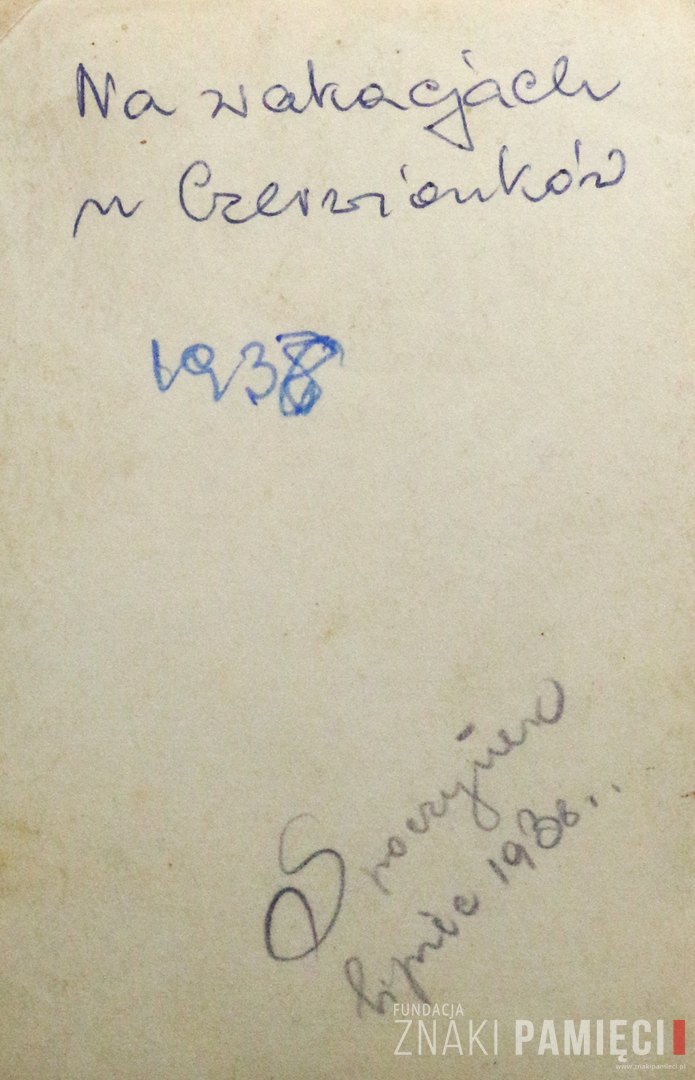 Na wakacjach
w Czerwionków
1938
lipiec 1938..
FUNDACJA
ZNAKI PAMIĘCI
www.znakipamieci.pl